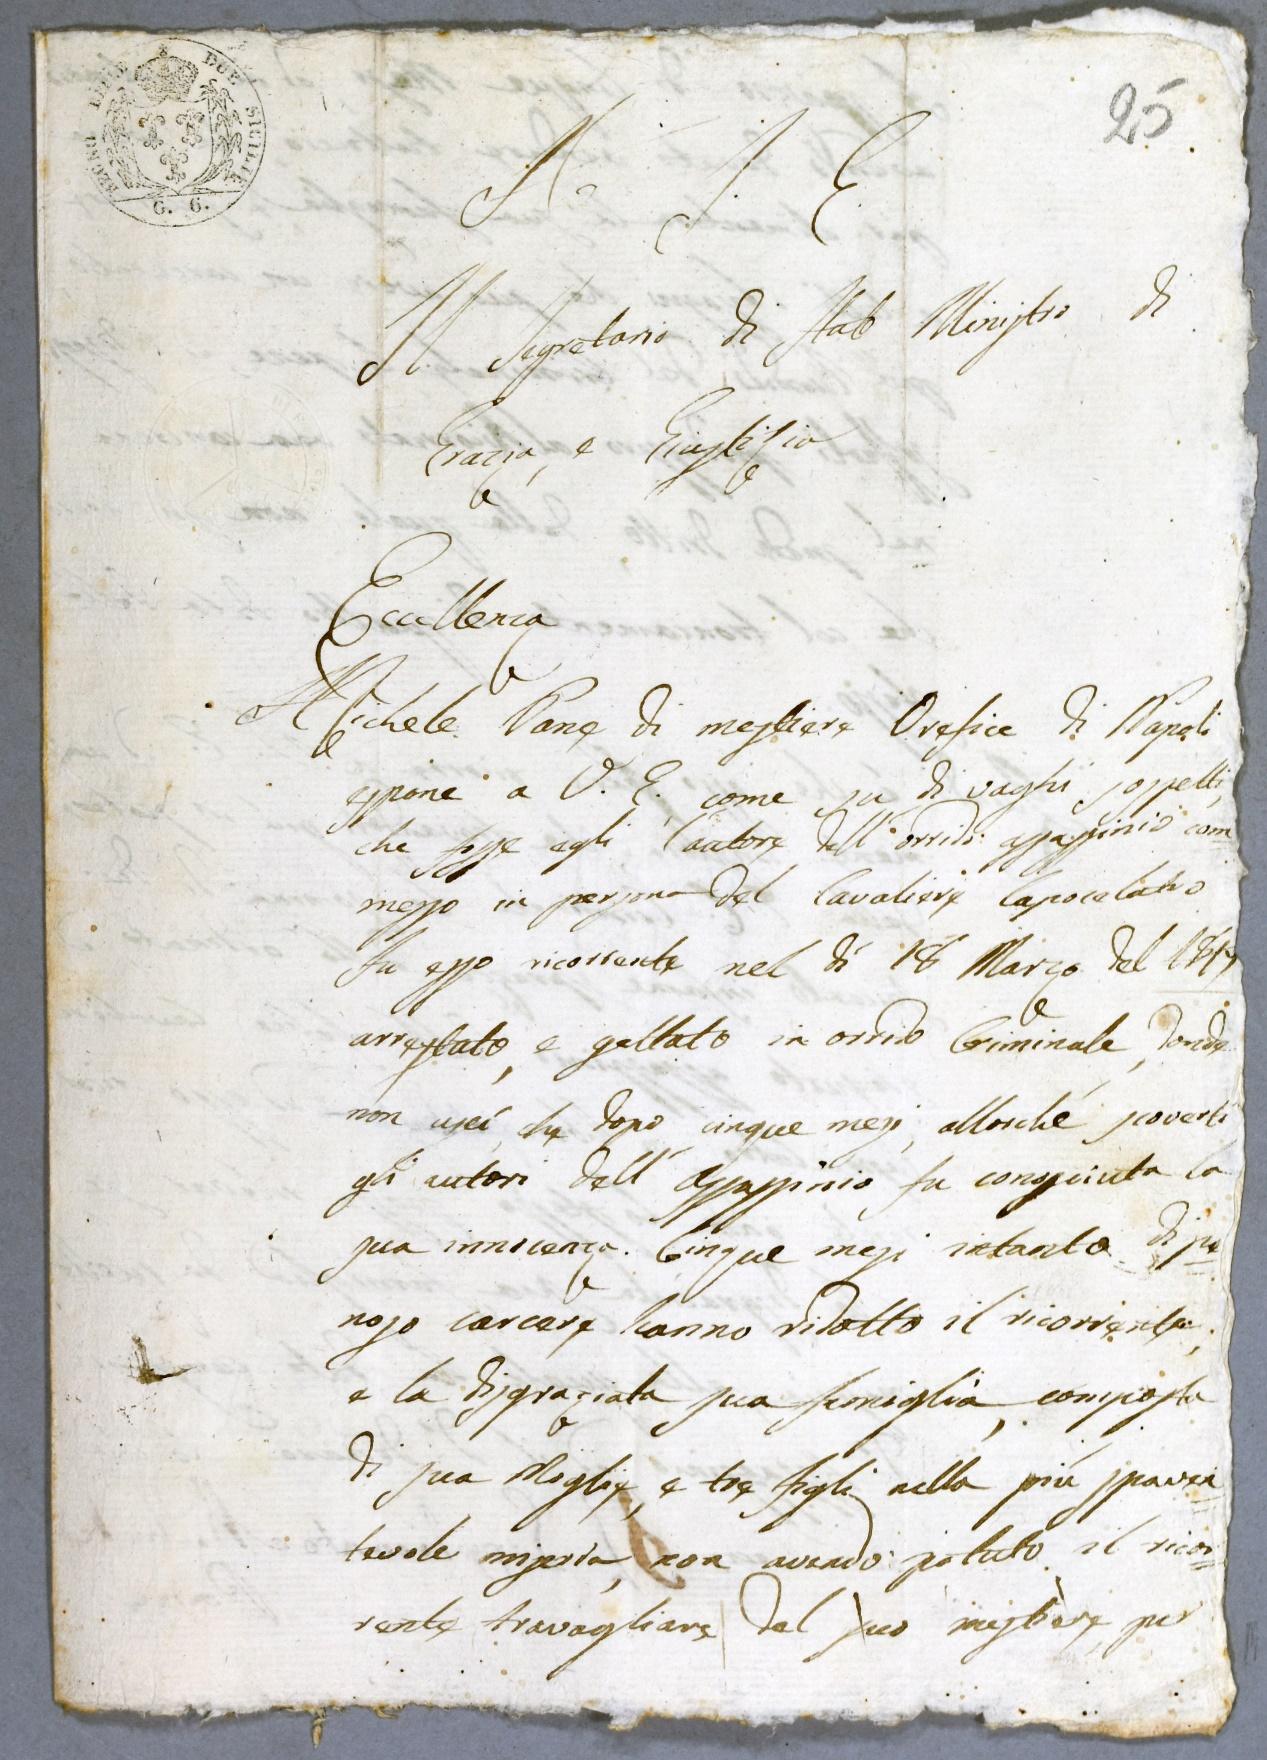 REGNO DELLE DUE SICILIE
G. G.
25
A S. E.
Il Segretario di Stato Ministro di
Grazia, e Giustizia
Eccellenza
Michele Pane di mestiere Orefice di Napoli
espone a V. E. come su di vaghi sospetti,
che fosse egli l'autore dell'orrido assassinio com
messo in persona del Cavaliere Capocelatro
fu esso ricorrente nel dì 18 Marzo del 1817
arrestato, e gettato in orrido Criminale, donde
non uscì che dopo cinque mesi, allorché scoverti
gli autori dell'Assassinio fu conosciuta la
sua innocenza. Cinque mesi intanto di pe
noso carcere hanno ridotto il ricorrente,
e la disgraziata sua famiglia, composta
di sua Moglie, e tre figli nella più spaven
tevole miseria, non avendo potuto il ricor
rente travagliare del suo mestiere per